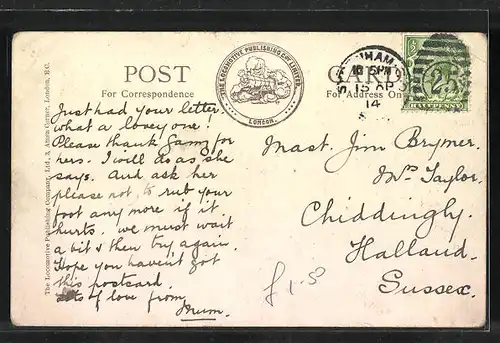 POST
For Correspondence
THE LOCOMOTIVE PUBLISHING COY LIMITED.
LONDON.
CARD
For Address Only
The Locomotive Publishing Company, Ltd., 3, Amen Corner, London, E.C.
Just had your letter.
what a lovely one!
Please thank Gam for
hers. I will do as she
says. And ask her
please not to rub your
foot any more if it
hurts. we must wait
a bit & then try again.
Hope you haven't got
this postcard.
Lots of love from
Mum.
5 PM
15 AP
14
25
HALFPENNY
Mast. Jim Brymer.
Mrs Taylor.
Chiddingly.
Halland.
Sussex.